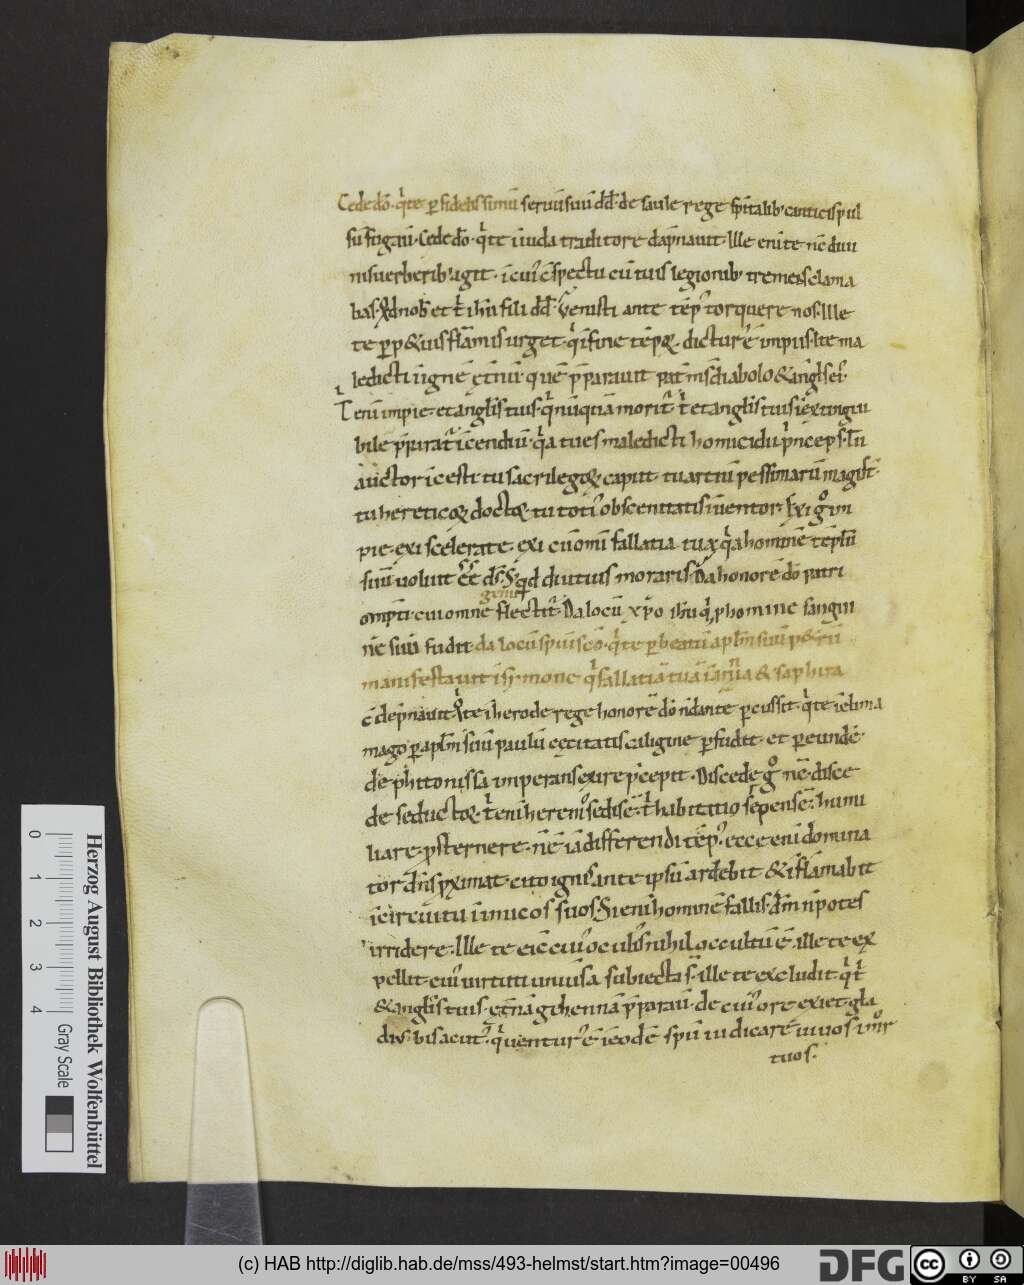 Cede dō q̄ te p fidelissimū seruū suū dd̄ de saule rege spitalib canticis pul
sū fugauit. Cede dō q̄ te iuuda traditore dāpnauit. Ille enī te nē diui
nis uerberib agit. icuī cspectu cū tuis legionib tremens clama
bas. Qd nob et t ihu fili dd̄. Venisti ante tēp torquere nos. Ille
te pp&uis flāmis urget. q̄ ifine tēpoꝝ. dictur ē impiis. Ite ma
ledicti iignē et̄nū. quē pparauit pat̄ ms diabolo & angl̄ ei.
T enī impie. et angl̄is tuis. q̄ nūquā morit̄. t et angl̄is tuis iextingui
bile prarat̄ icendiū. q̄a tu es maledicti homicidii pnceps. tu
auctor icesti. tu sacrilegoꝝ caput. tu artiū pessimarū magist̄.
tu hereticoꝝ doctoꝝ. tu toti obscenitatis iuentor. Exi g̊ im
pie. exi scelerate. exi cū omī fallatia tua. q̄a hominē tēplū
suū uoluit ēē ds̄. S; qd diutius moraris. Da honorē dō patri
omp̄ti. cui omne genu flectit̄. Da locū xp̄o ihu q̄ p homine sangui
nē suū fudit. da locū spui sco. q̄ te p beatū aplm suū petrū
manifestauit isymone. q̄ fallatiā tuā ianania & saphira
cdēpnauit. q̄ te iherode rege honorē dō n dante pcussit. q̄ te ielima
mago p aplm suū paulū cecitatis caligine pfudit. et p eundē
de phitonissa imperans exire pcepit. Discede g̊ nē. disce
de seductoꝝ. t enī herem sedis ē. t habitatio serpens ē. humi
liare. psternere. nē ē iā differendi tēp. ecce enī domina
tor dn̄s pximat. cito ignis ante ipsū ardebit & iflāmabit
icircuitu iimicos suos. Si enī hominē fallis. dm̄ n potes
irridere. Ille te eicē cui oculis nihil occultū ē. ille te ex
pellit. cui uirtuti uniuersa subiecta s. ille te excludit. q̄ t
& angl̄is tuis. et̄nā gehennā pparauit. de cui ore exiet gla
dius bis acut. q̄ uentur ē ieodē spū iudicare uiuos. mor
tuos.
0
1
2
3
4
Herzog August Bibliothek Wolfenbüttel
Gray Scale
(c) HAB http://diglib.hab.de/mss/493-helmst/start.htm?image=00496
DFG
cc
BY SA